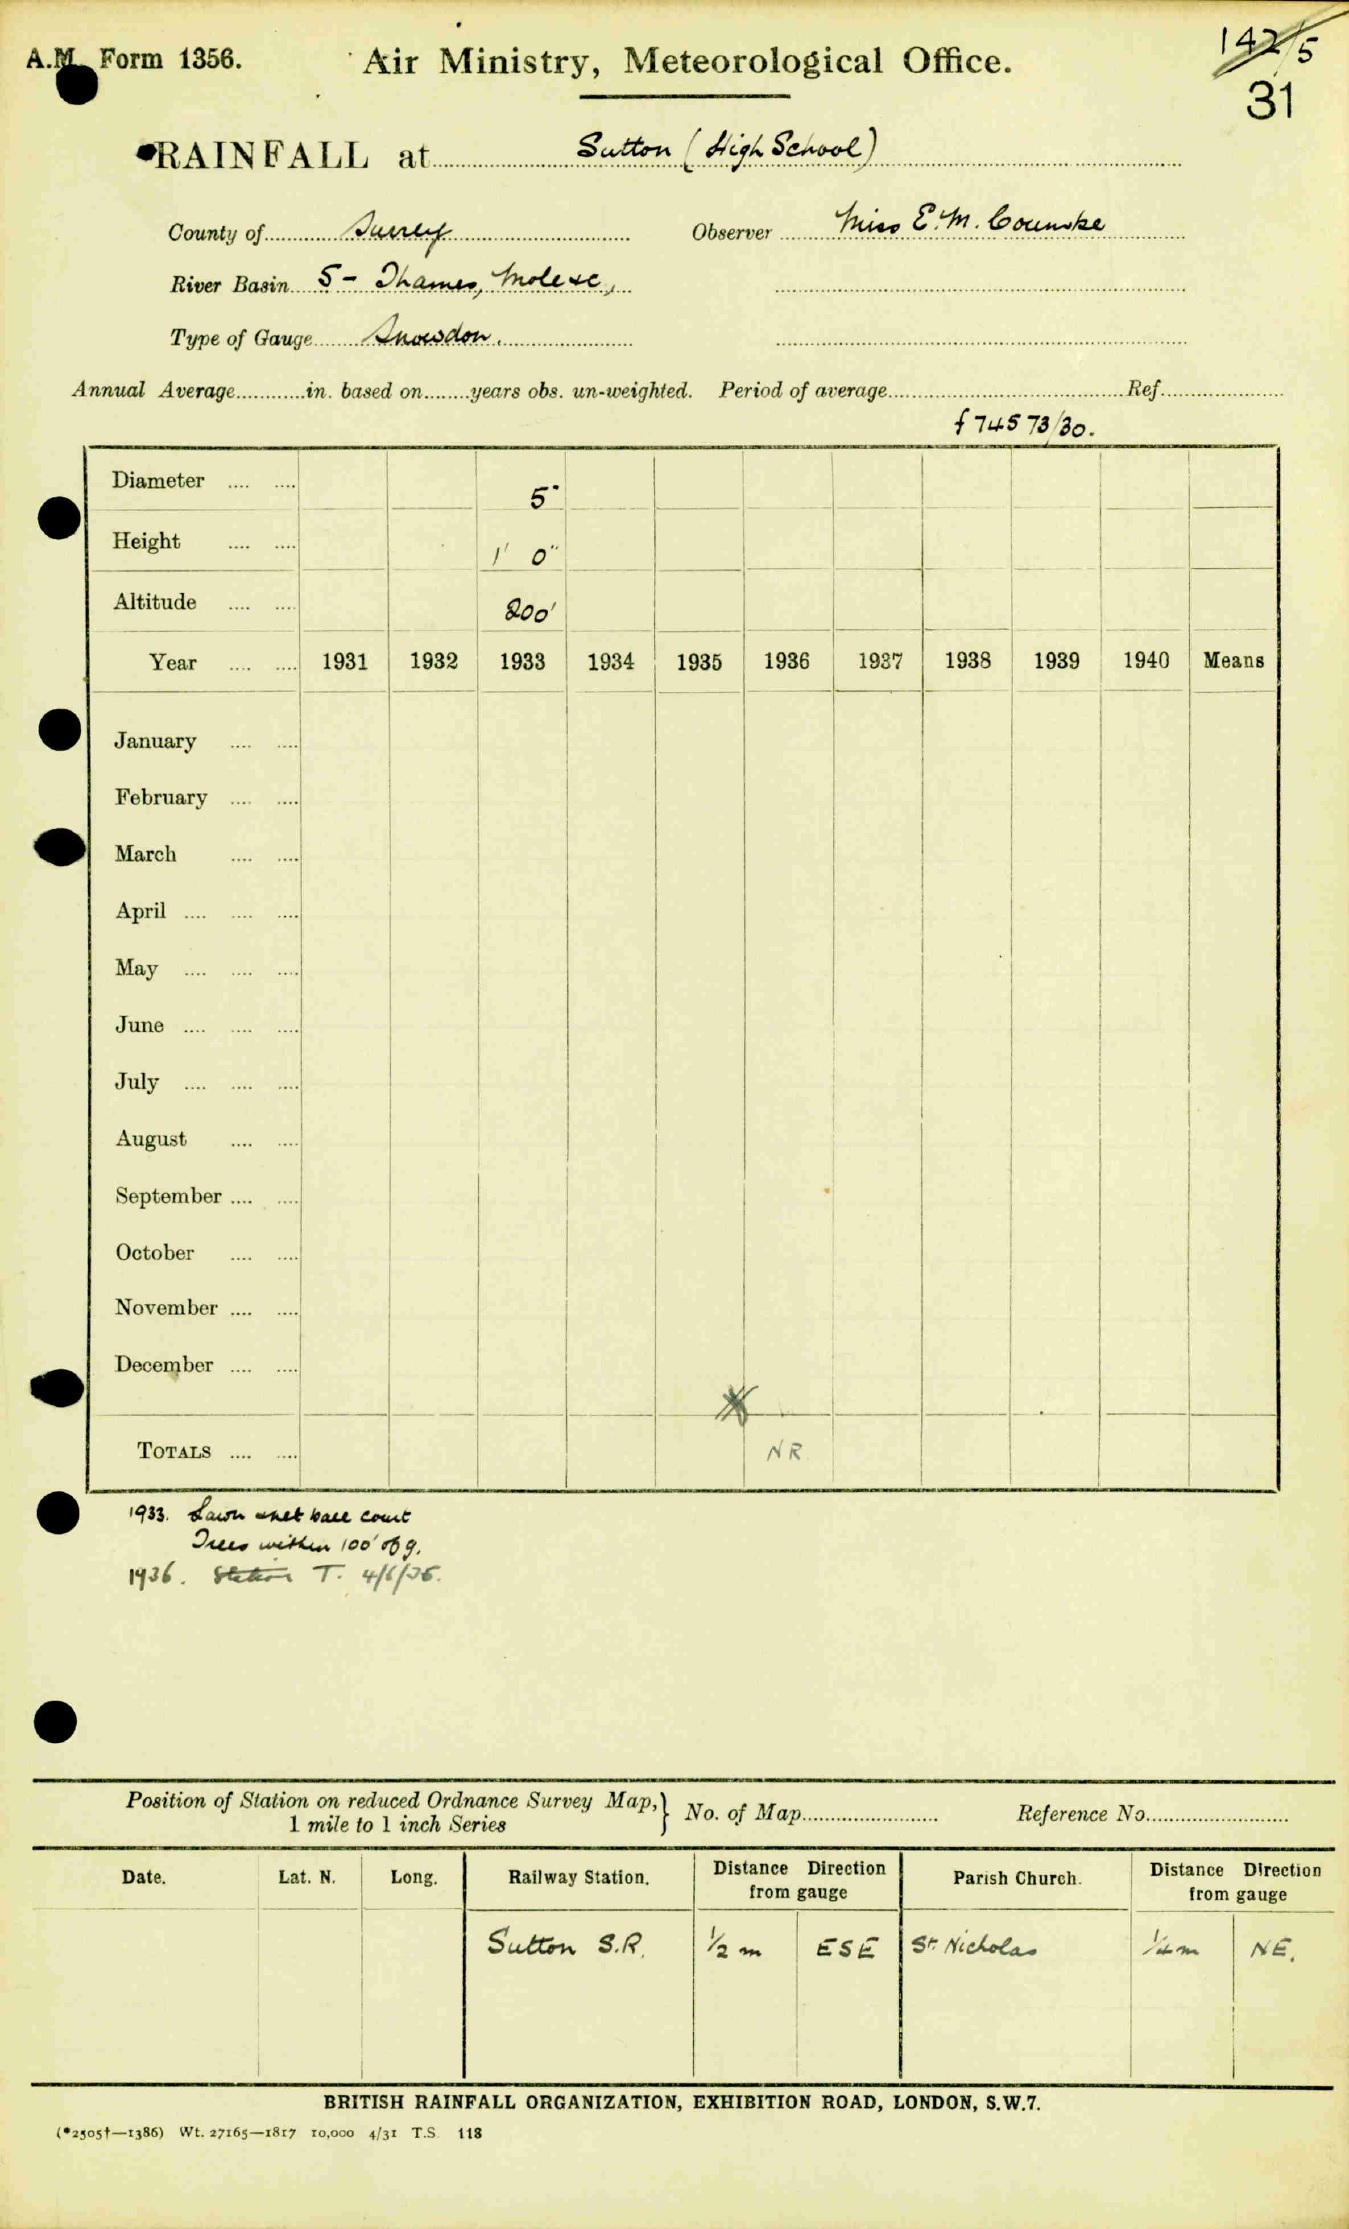 A.M. Form 1356.
Air Ministry, Meteorological Office.
142/5
31
RAINFALL at Sutton (High School)
County of Surrey
Observer Miss E. M.
River Basin 5 - Thames, Mole &c,
Type of Gauge Snowdon.
Annual Average............in. based on........years obs. un-weighted. Period of average........................................Ref.....................
f 74573/30.
Diameter .... .... 5"
Height .... .... 1' 0"
Altitude .... .... 200'
Year .... .... 1931 1932 1933 1934 1935 1936 1937 1938 1939 1940 Means
January .... ....
February .... ....
March .... ....
April .... .... ....
May .... .... ....
June .... .... ....
July .... .... ....
August .... ....
September .... ....
October .... ....
November .... ....
December .... ....
TOTALS .... .... NR
1933. Lawn net ball court
Trees within 100' of g.
1936. Station T. 4/6/36.
Position of Station on reduced Ordnance Survey Map,
1 mile to 1 inch Series
No. of Map........................ Reference No.........................
Date. Lat. N. Long. Railway Station. Distance Direction from gauge Parish Church. Distance Direction from gauge
Sutton S.R. 1/2 m ESE St. Nicholas 1/4 m NE.
BRITISH RAINFALL ORGANIZATION, EXHIBITION ROAD, LONDON, S.W.7.
(*2505†—1386) Wt. 27165—1817 10,000 4/31 T.S. 118